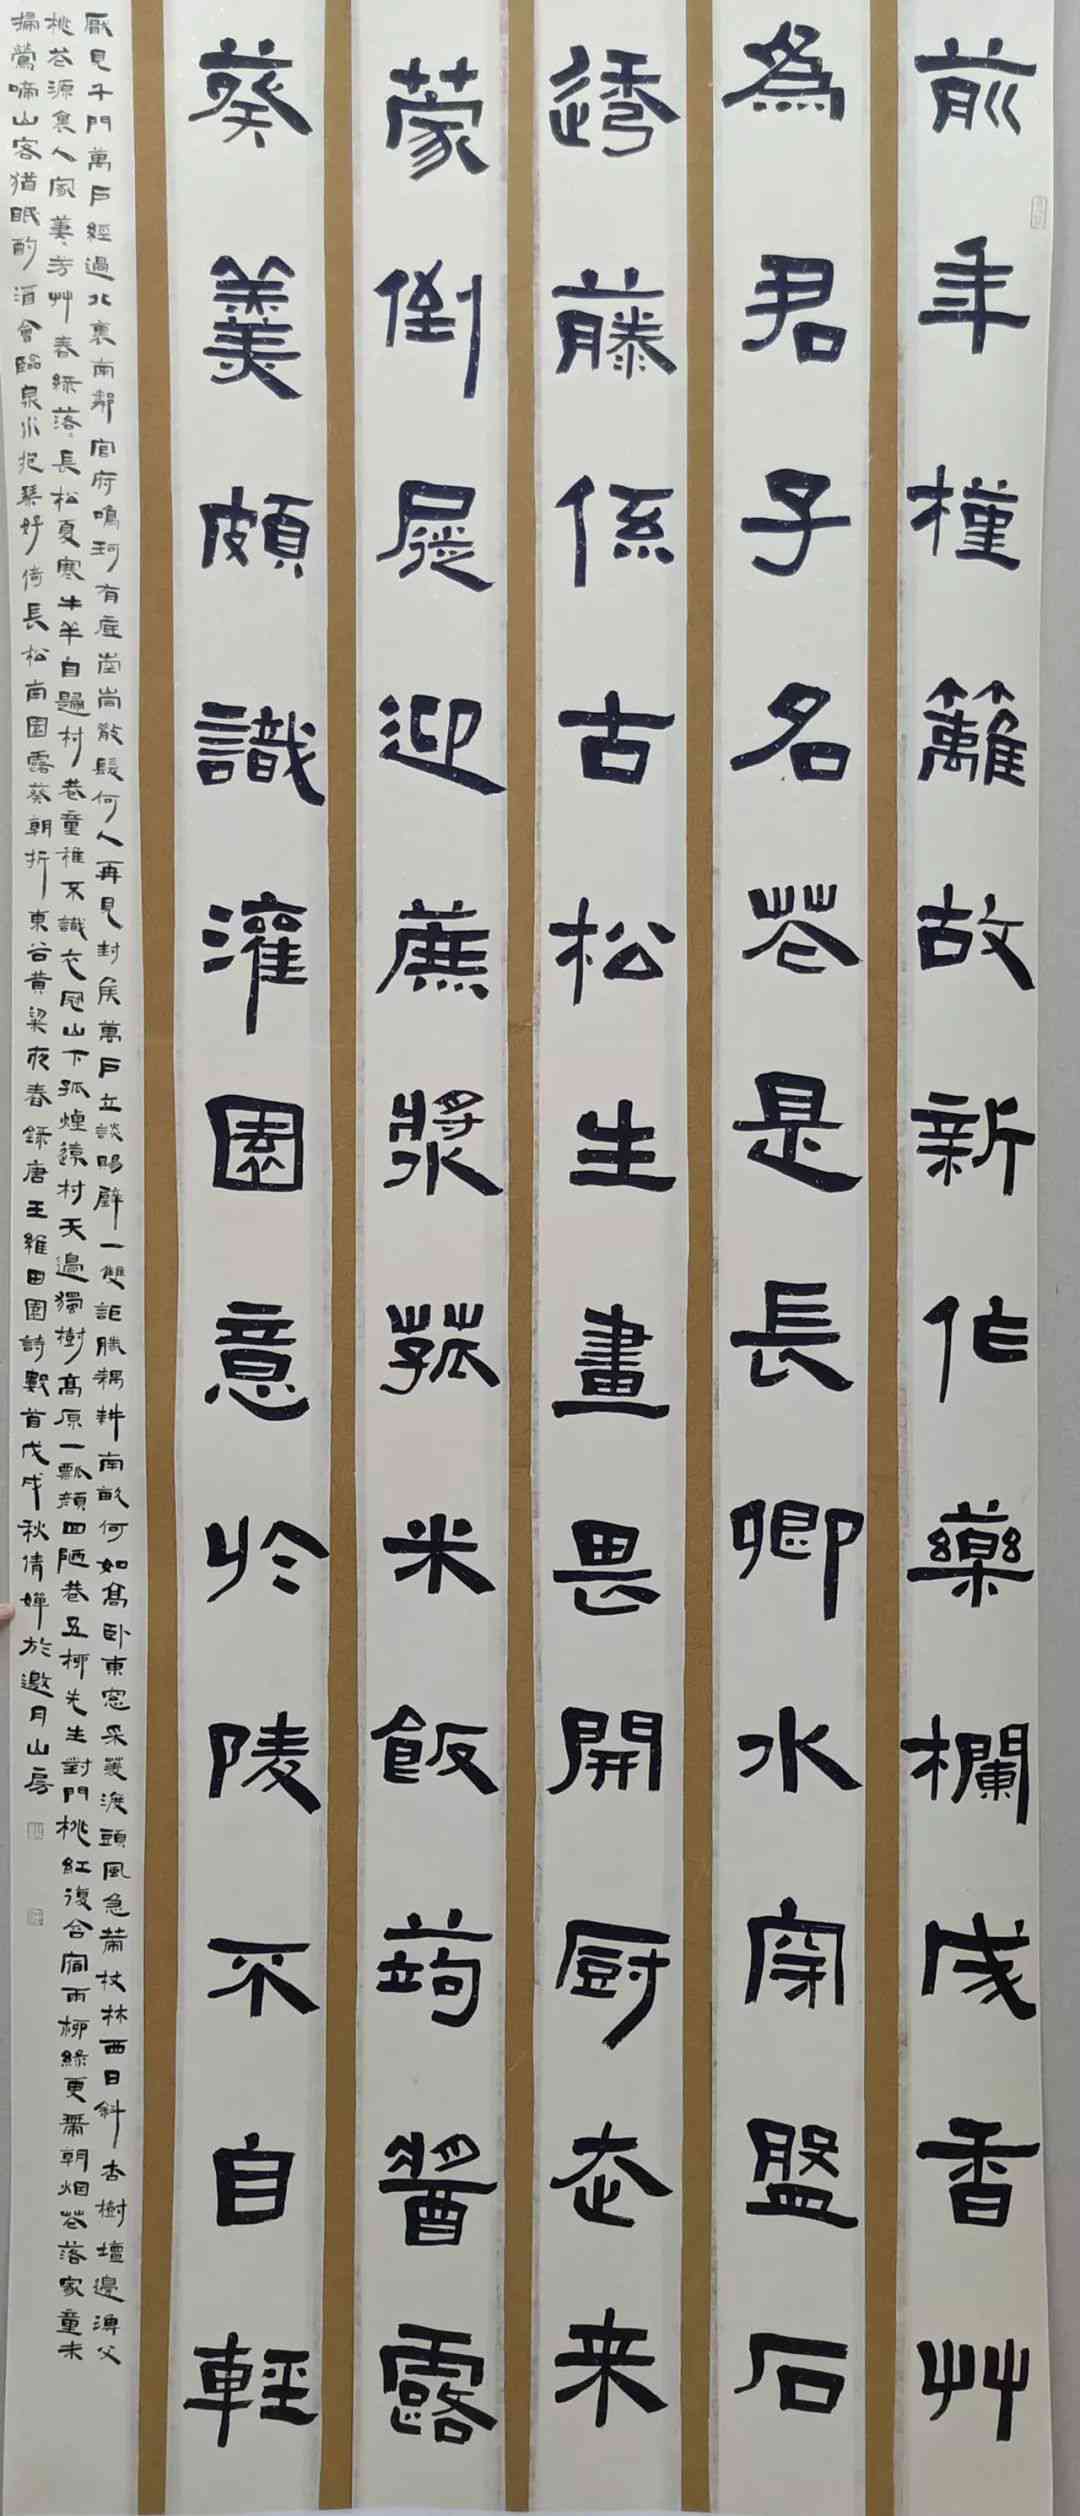 前年槿籬故新作藥欄成香艸
為君子名花是長卿水穿盤石
透藤係古松生畫畏開厨走来
蒙倒屣迎蔗漿菰米飯蒟醬露
葵羹頗識灌園意於陵不自輕
厭見千門萬戶經過北裏南鄰官府鳴珂有底崆峒散髮何人再見封侯萬戶立談賜璧一雙詎勝耦耕南畝何如高臥東窓采菱渡頭風急策杖林西日斜杏樹壇邊漁父
桃花源裏人家萋々芳艸春綠落々長松夏寒牛羊自歸村巷童稚不識衣冠山下孤煙遠村天邊獨樹高原一瓢顏回陋巷五柳先生對門桃紅復含宿雨柳綠更帶朝烟花落家童未
掃鶯啼山客猶眠酌酒會臨泉水抱琴好倚長松南園露葵朝折東谷黃粱夜舂錄唐王維田園詩數首戊戌秋倩嬋於邀月山房